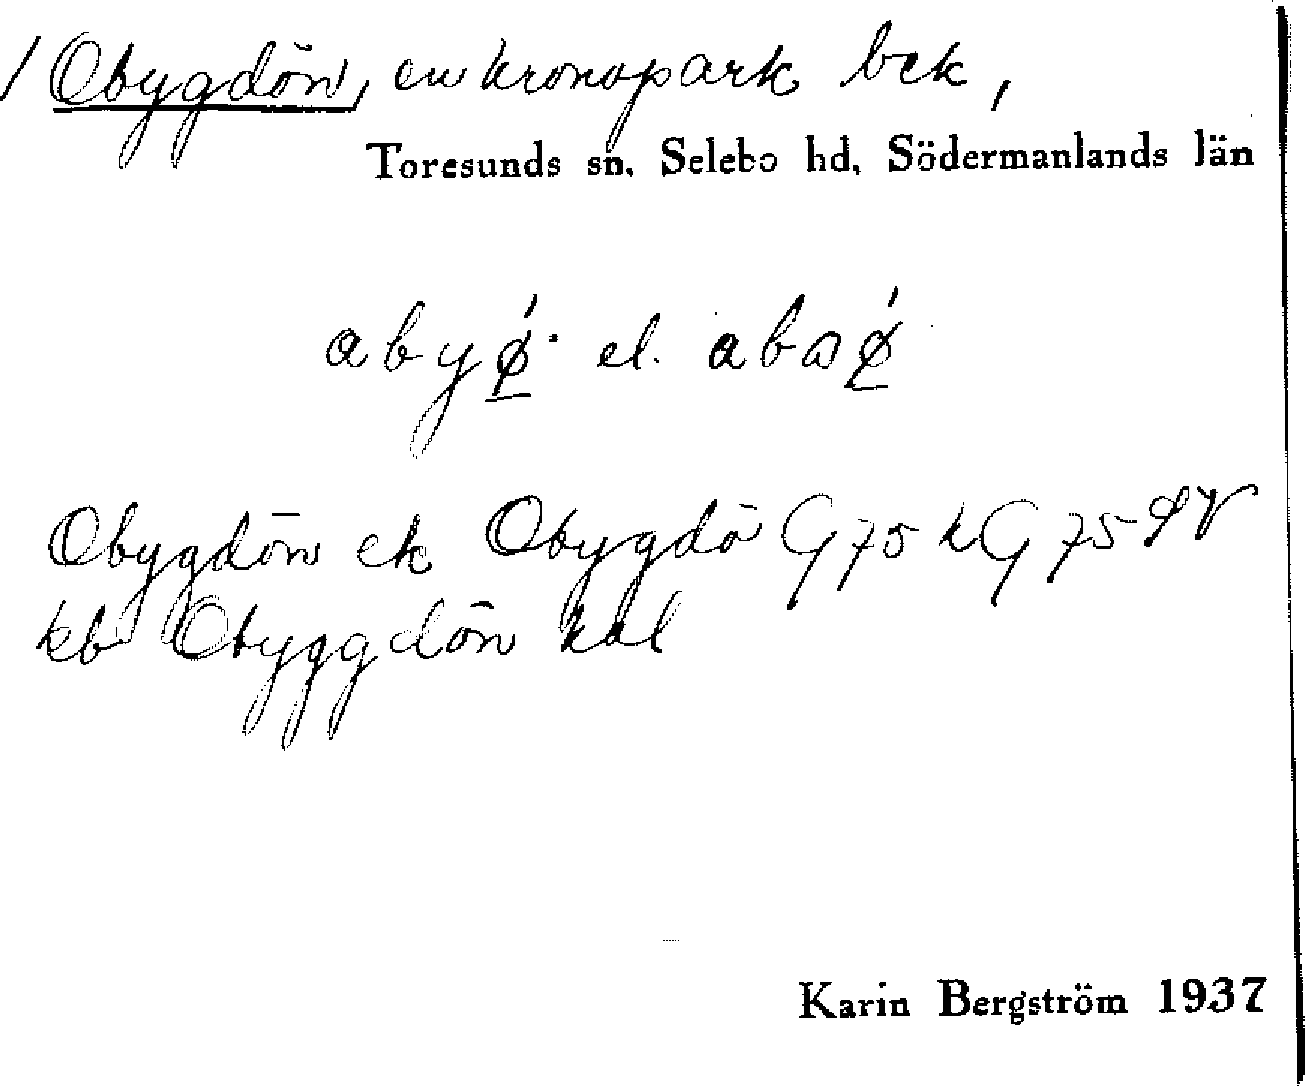 / Obygdön, en kronopark bek,
Toresunds sn, Selebo hd, Södermanlands län
abyǿ· el. abaǿ
Obygdön ek Obygdö G75 k G75 SV
kb Obyggdön kal
Karin Bergström 1937